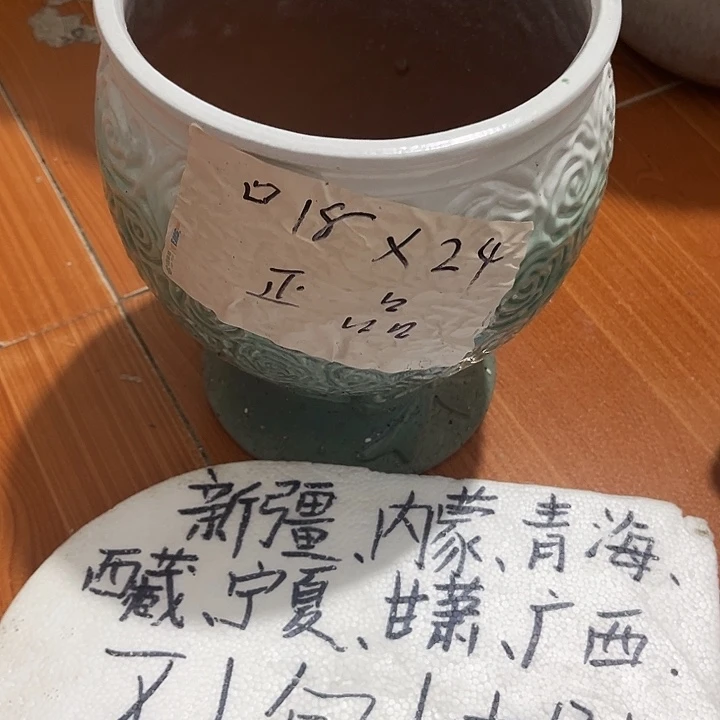 口18×24
正品
新疆、内蒙、青海、
西藏、宁夏、甘肃、广西.